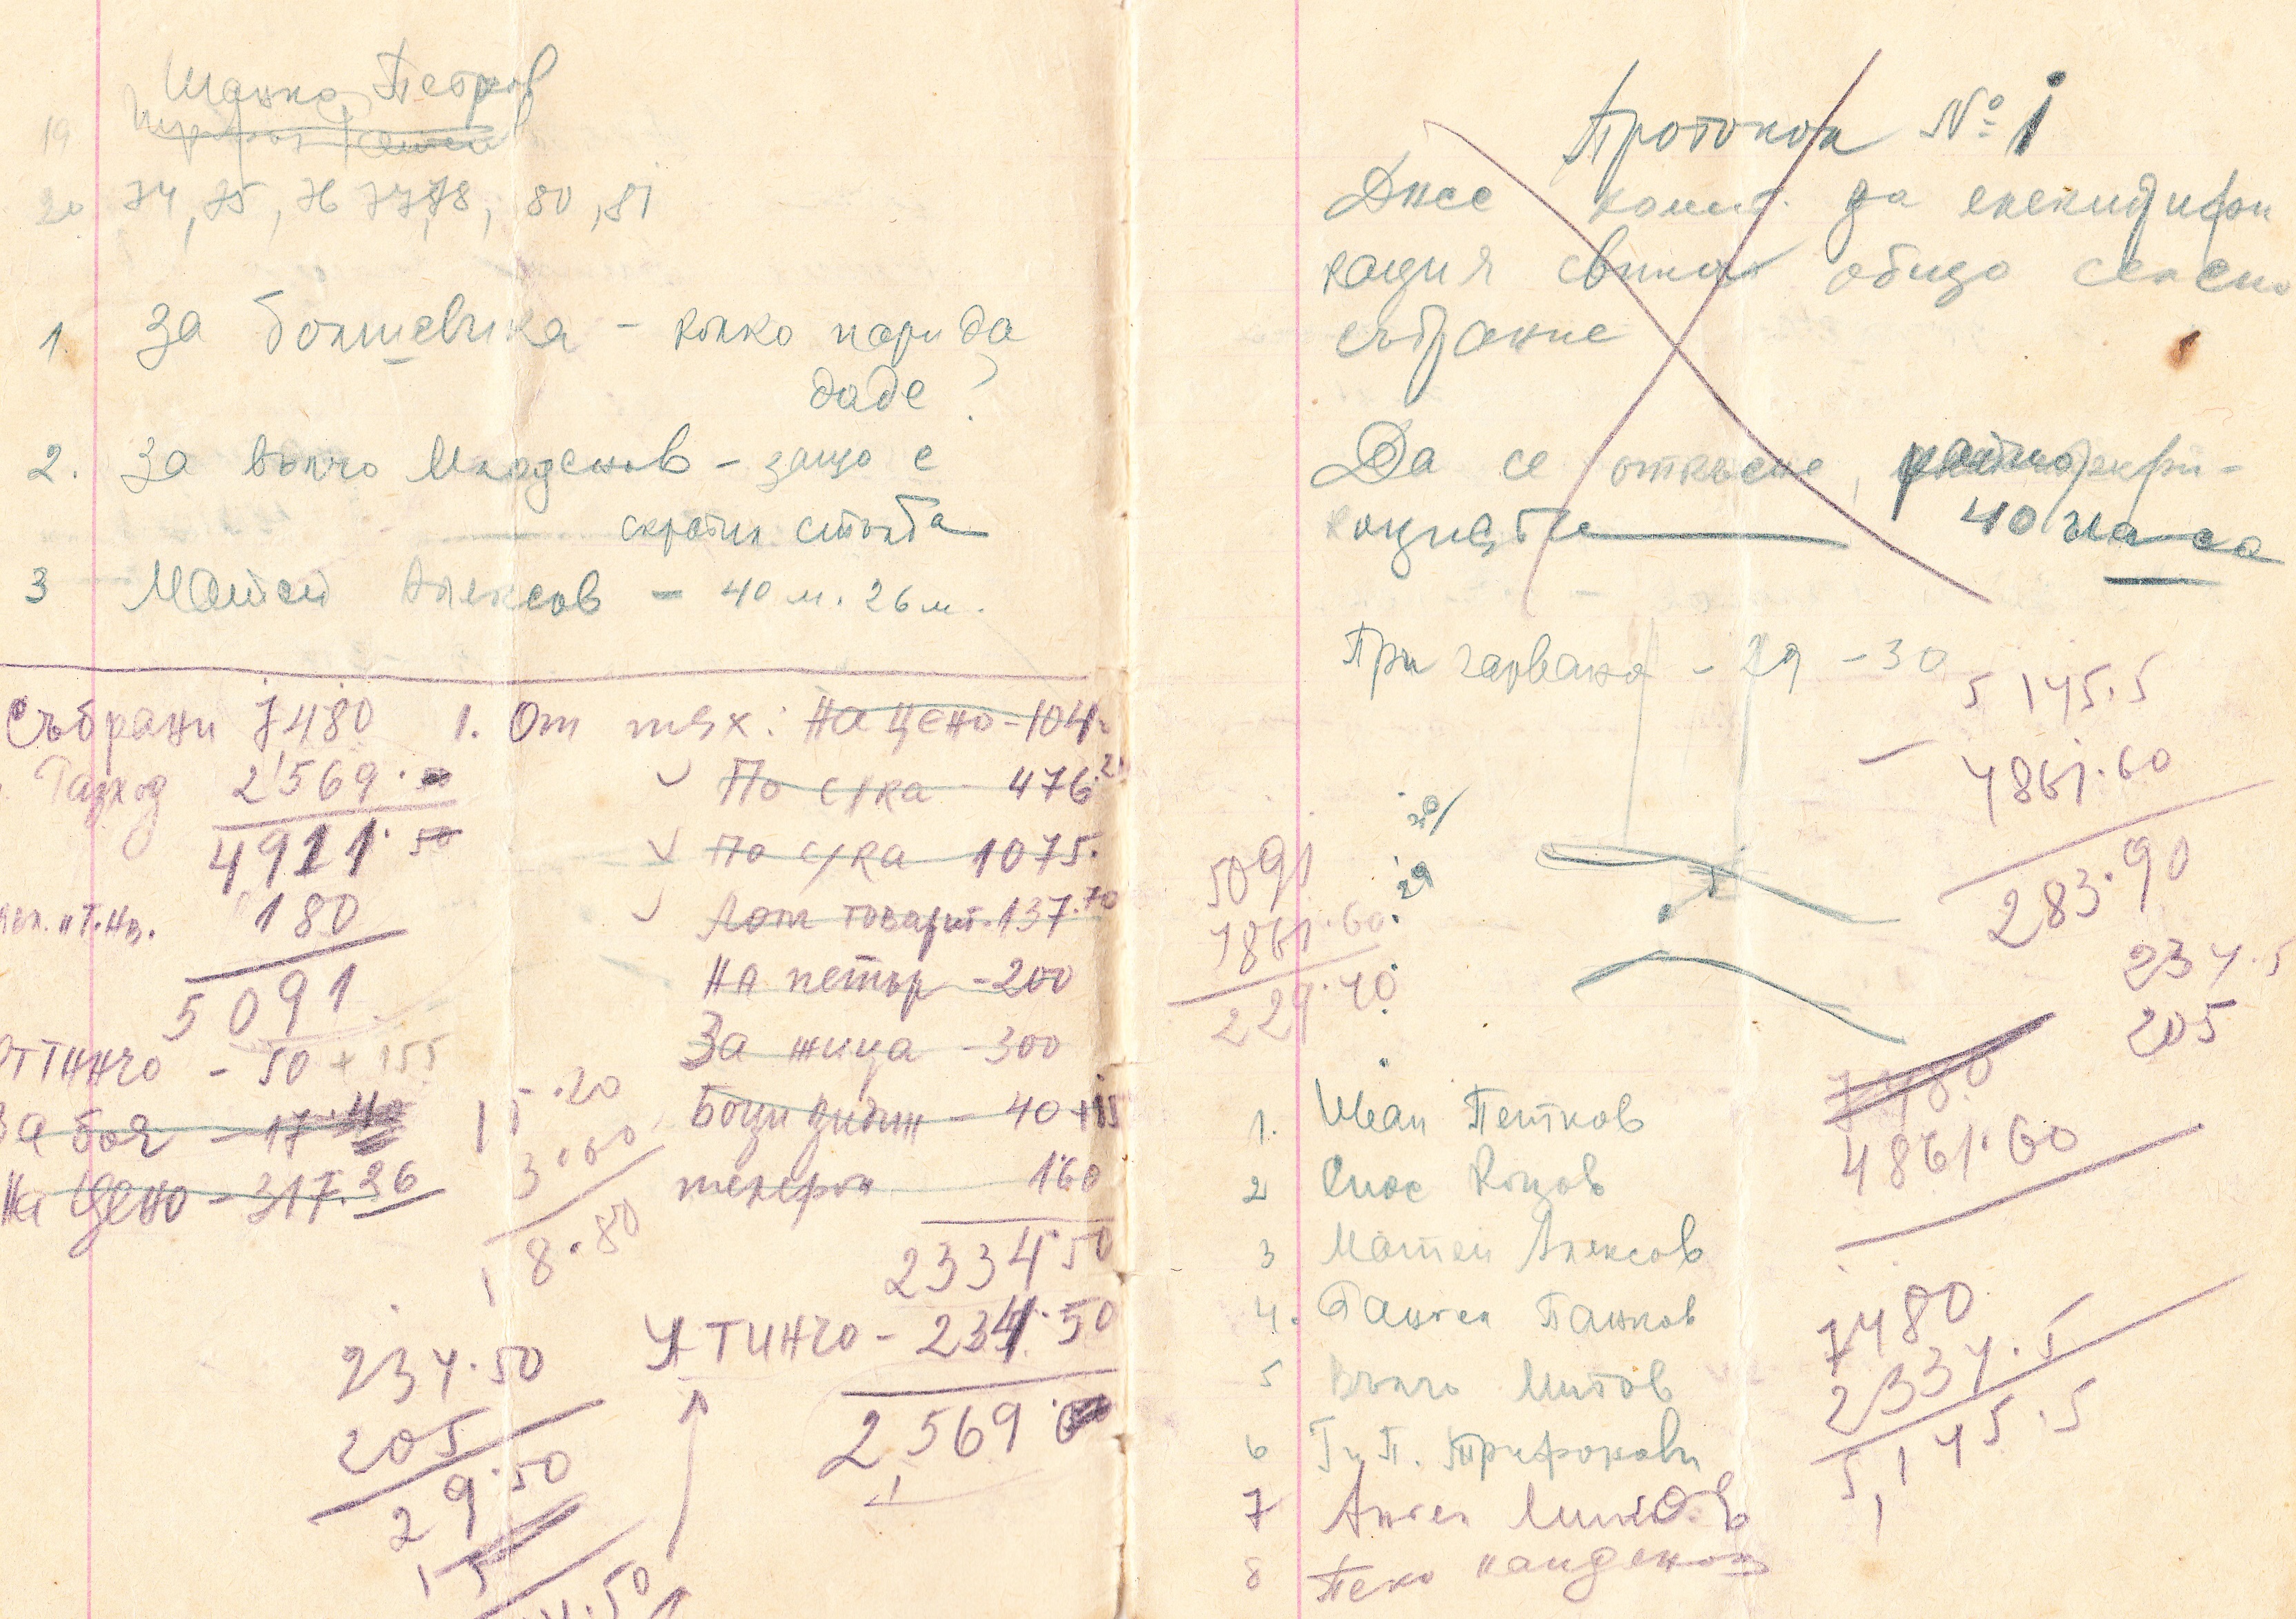 Петров
20 74, 75, 76 77, 78, 80, 81
1. За болшевика - колко пари да
даде?
2. За вълчо Младенов - защо е
скратил стълба
3 Матей Алексов - 40 м. 26 м.
Събрани 7480
Разход 2569.
4911.50
180
5091
От Тинчо - 50 + 155
За боя - 17.
На Цено - 317.36
1. От тях: На цено - 104
По с/ка 476.2
По с/ка 1075.
Лот товарит. 137.70
На петър - 200
За жица - 300
Боци - 40 + 15
телефон 160
2334.50
У Тинчо - 234.50
2569.
15.20
3.60
18.80
234.50
205
29.50
15
Протокол № 1
Днес комит. за електрифи
кация свика общо селско
събрание
Да се откъсне,
40 часа
При чарвако - 29 - 30
5145.5
4861.60
283.90
234.5
205
29
5091
4861.60
229.40
1. Иван Петков
2 Спас Коцов
3 Матеи Алексов
4. Пангел Панков
5 Вълчо Митов
6 Ги П. Трифонови
7 Ангел Минков
8 Пеко Найденов
7480
4861.60
7480
2334.5
5145.5